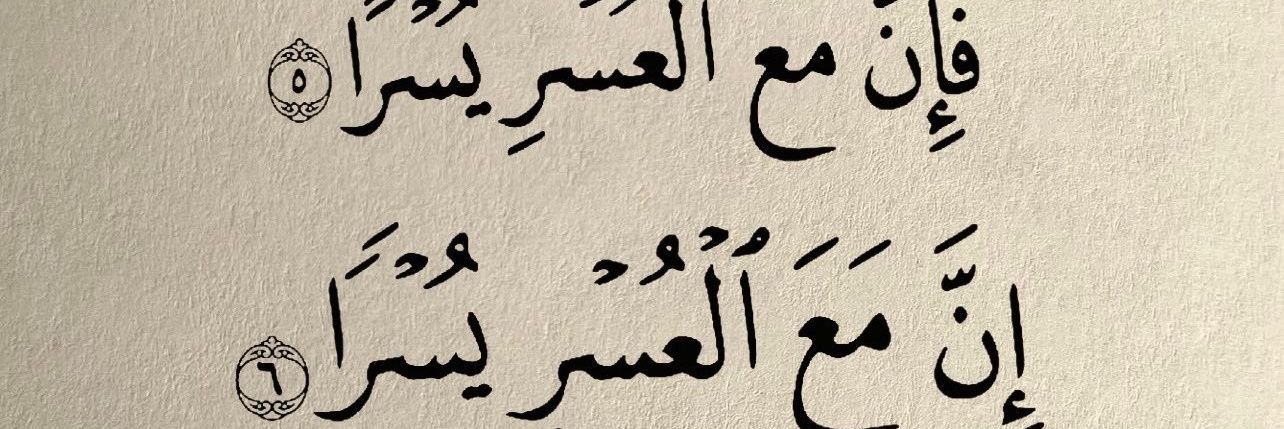 فَإِنَّ مَعَ الْعُسْرِ يُسْرًا ٥
إِنَّ مَعَ ٱلْعُسْرِ يُسْرًا ٦